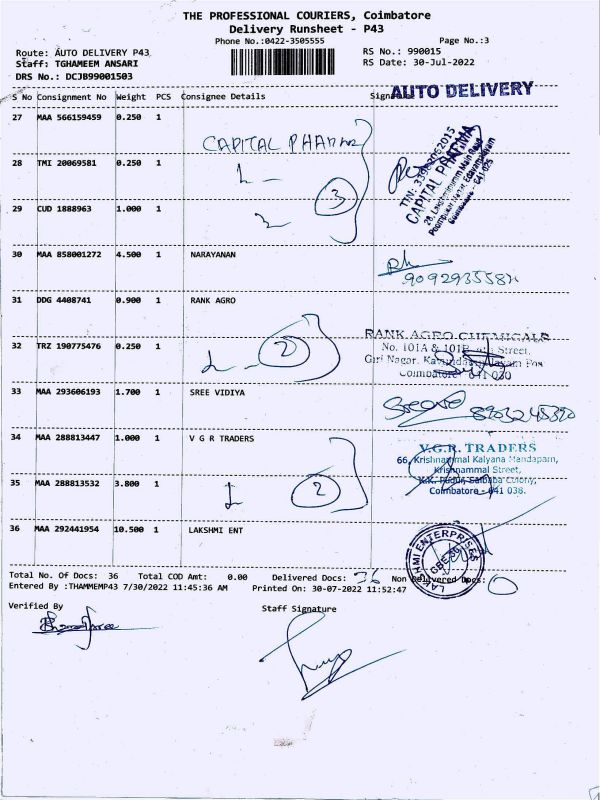 THE PROFESSIONAL COURIERS, Coimbatore
Delivery Runsheet - P43
Phone No.:0422-3505555
Page No.:3
Route: AUTO DELIVERY P43
RS No.: 990015
Staff: TGHAMEEM ANSARI
RS Date: 30-Jul-2022
DRS No.: DCJB99001503
AUTO DELIVERY
S No Consignment No Weight PCS Consignee Details Signature
27 MAA 566159459 0.250 1
CAPITAL PHARMA
28 TMI 20069581 0.250 1
3
CAPITAL PHARMA
29 CUD 1888963 1.000 1
30 MAA 858001272 4.500 1 NARAYANAN
31 DDG 4408741 0.900 1 RANK AGRO
32 TRZ 190775476 0.250 1
2
RANK AGRO CHEMICALS
No. 101A & 101B, 4th Street,
Giri Nagar,
Coimbatore - 641 030
33 MAA 293606193 1.700 1 SREE VIDIYA
34 MAA 288813447 1.000 1 V G R TRADERS
V.G.R. TRADERS
66, Krishnammal Kalyana Mandapam,
Krishnammal Street,
K.K. Pudur, Saibaba Colony,
Coimbatore - 641 038.
35 MAA 288813532 3.800 1
2
36 MAA 292441954 10.500 1 LAKSHMI ENT
LAKSHMI ENTERPRISES
Total No. Of Docs: 36 Total COD Amt: 0.00 Delivered Docs: 36 Non Delivered Docs: 0
Entered By :THAMMEMP43 7/30/2022 11:45:36 AM Printed On: 30-07-2022 11:52:47
Verified By
Staff Signature